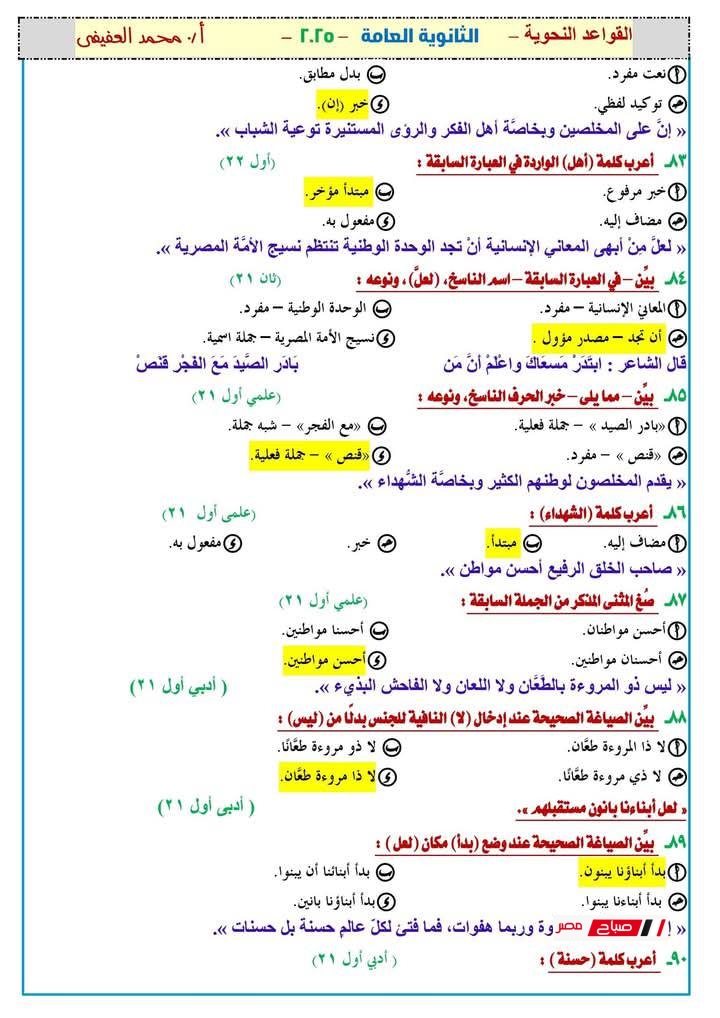 القواعد النحوية – الثانوية العامة – ٢٠٢٥ – أ/ محمد العفيفى
أ نعت مفرد. ب بدل مطابق.
ج توكيد لفظي. د خبر (إن).
« إنَّ على المخلصين وبخاصَّة أهل الفكر والرؤى المستنيرة توعية الشباب ».
٨٣ـ أعرب كلمة (أهل) الواردة في العبارة السابقة : (أول ٢٢)
أ خبر مرفوع. ب مبتدأ مؤخر.
ج مضاف إليه. د مفعول به.
« لعلَّ مِنْ أبهى المعاني الإنسانية أنْ تجد الوحدة الوطنية تنتظم نسيج الأمَّة المصرية ».
٨٤ـ بيِّن – في العبارة السابقة – اسم الناسخ، (لعلَّ) ، ونوعه : (ثان ٢١)
أ المعاني الإنسانية – مفرد. ب الوحدة الوطنية – مفرد.
ج أن تجد – مصدر مؤول . د نسيج الأمة المصرية – جملة اسمية.
قال الشاعر : ابتَدَرْ مَسعَاكَ واعْلَمْ أنَّ مَن بَادَر الصَّيدَ مَعَ الفَجْر قَنَصْ
٨٥ـ بيِّن – مما يلى – خبر الحرف الناسخ، ونوعه : (علمي أول ٢١)
أ «بادر الصيد » – جملة فعلية. ب «مع الفجر» – شبه جملة.
ج «قنص » – مفرد. د «قنص » – جملة فعلية.
« يقدم المخلصون لوطنهم الكثير وبخاصَّة الشُّهداء ».
٨٦ـ أعرب كلمة (الشهداء) : (علمى أول ٢١)
أ مضاف إليه. ب مبتدأ. ج خبر. د مفعول به.
« صاحب الخلق الرفيع أحسن مواطن ».
٨٧ـ صُغ المثنى المذكر من الجملة السابقة : (علمي أول ٢١)
أ أحسن مواطنان. ب أحسنا مواطنين.
ج أحسنان مواطنين. د أحسن مواطنين.
« ليس ذو المروءة بالطَّعَّان ولا اللعان ولا الفاحش البذيء ». ( أدبي أول ٢١)
٨٨ـ بيِّن الصياغة الصحيحة عند إدخال (لا) النافية للجنس بدلًا من (ليس) :
أ لا ذا المروءة طعَّان. ب لا ذو مروءة طعَّانًا.
ج لا ذي مروءة طعَّانًا. د لا ذا مروءة طعَّان.
« لعل أبناءنا بانون مستقبلهم ». ( أدبى أول ٢١)
٨٩ـ بيِّن الصياغة الصحيحة عند وضع (بدأ) مكان (لعل ) :
أ بدأ أبناؤنا يبنون. ب بدأ أبنائنا أن يبنوا.
ج بدأ أبناءنا يبنوا. د بدأ أبناؤنا بانين.
« وة وربما هفوات، فما فتئ لكلّ عالم حسنة بل حسنات ».
صباح مصر
٩٠ـ أعرب كلمة (حسنة ) : ( أدبي أول ٢١)